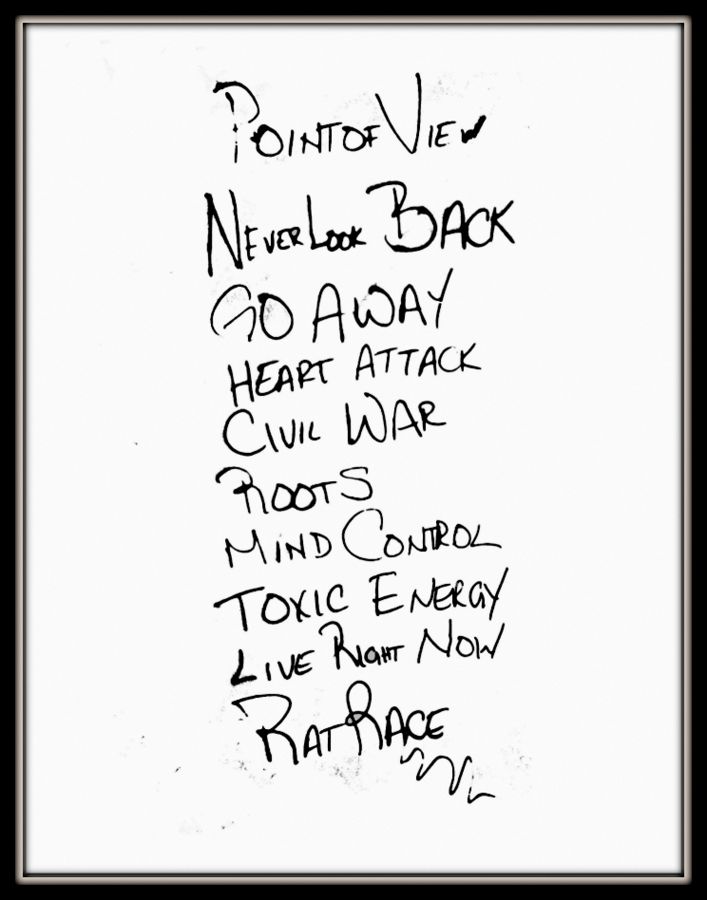 Point of View
Never Look Back
Go Away
Heart Attack
Civil War
Roots
Mind Control
Toxic Energy
Live Right Now
Rat Race